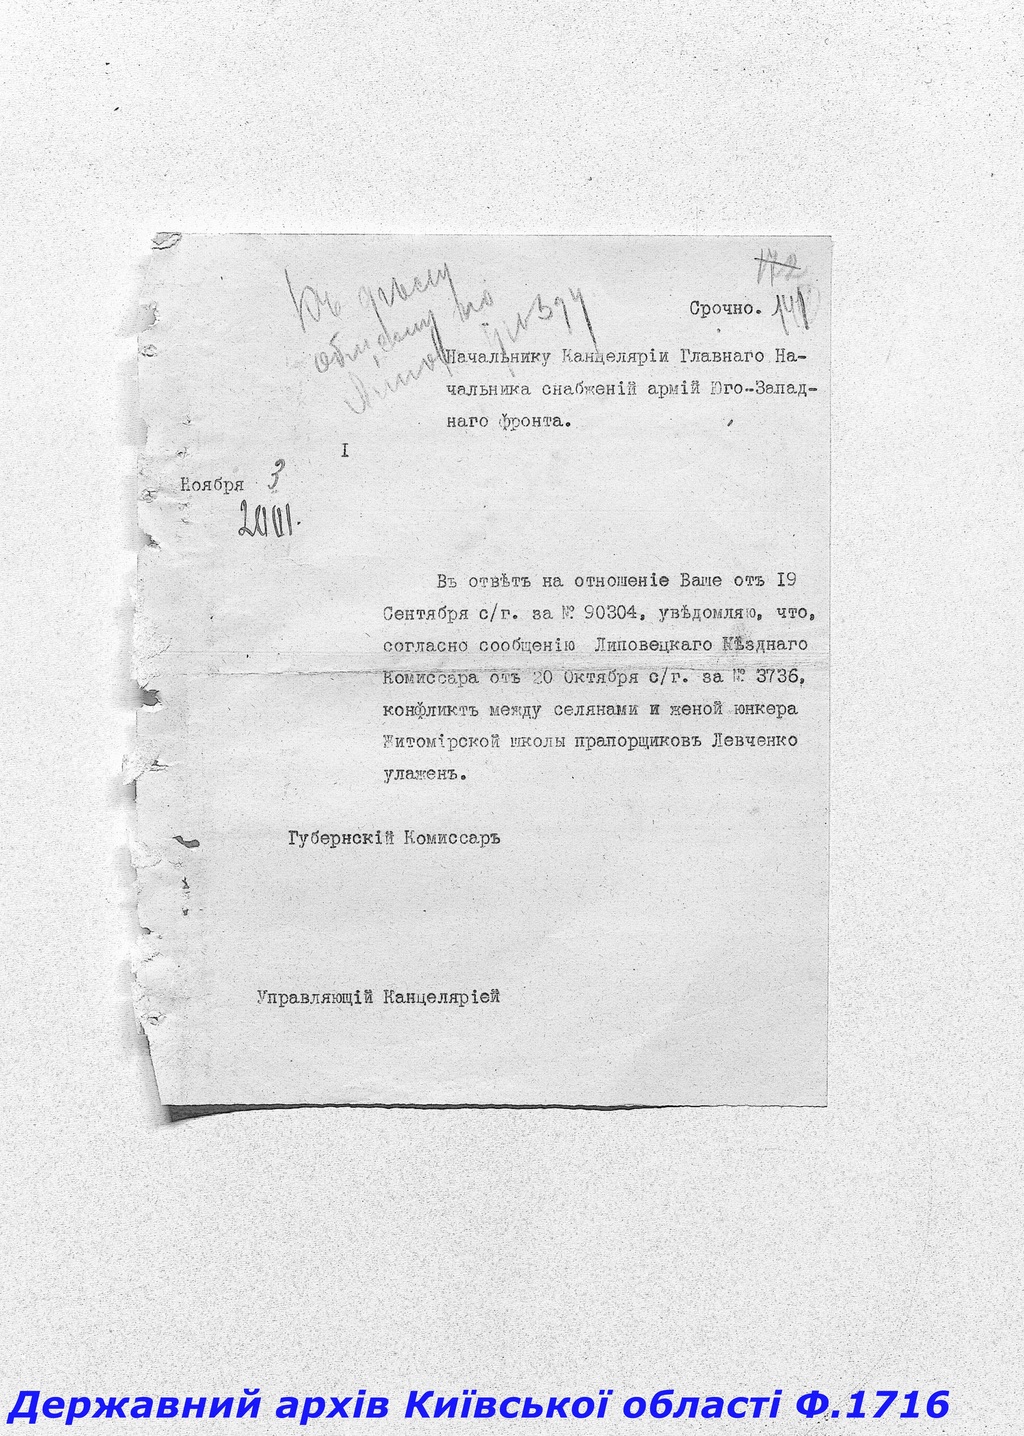 172
Срочно. 141
Къ дѣлу
по
уѣзду
Начальнику Канцеляріи Главнаго На-
чальника снабженій армій Юго-Запад-
наго фронта.
I
Ноября 3
Въ отвѣтъ на отношеніе Ваше отъ 19
Сентября с/г. за № 90304, увѣдомляю, что,
согласно сообщенію Липовецкаго Уѣзднаго
Комиссара отъ 20 Октября с/г. за № 3736,
конфликтъ между селянами и женой юнкера
Житомірской школы прапорщиковъ Левченко
улаженъ.
Губернскій Комиссаръ
Управляющій Канцеляріей
Державний архів Київської області Ф.1716